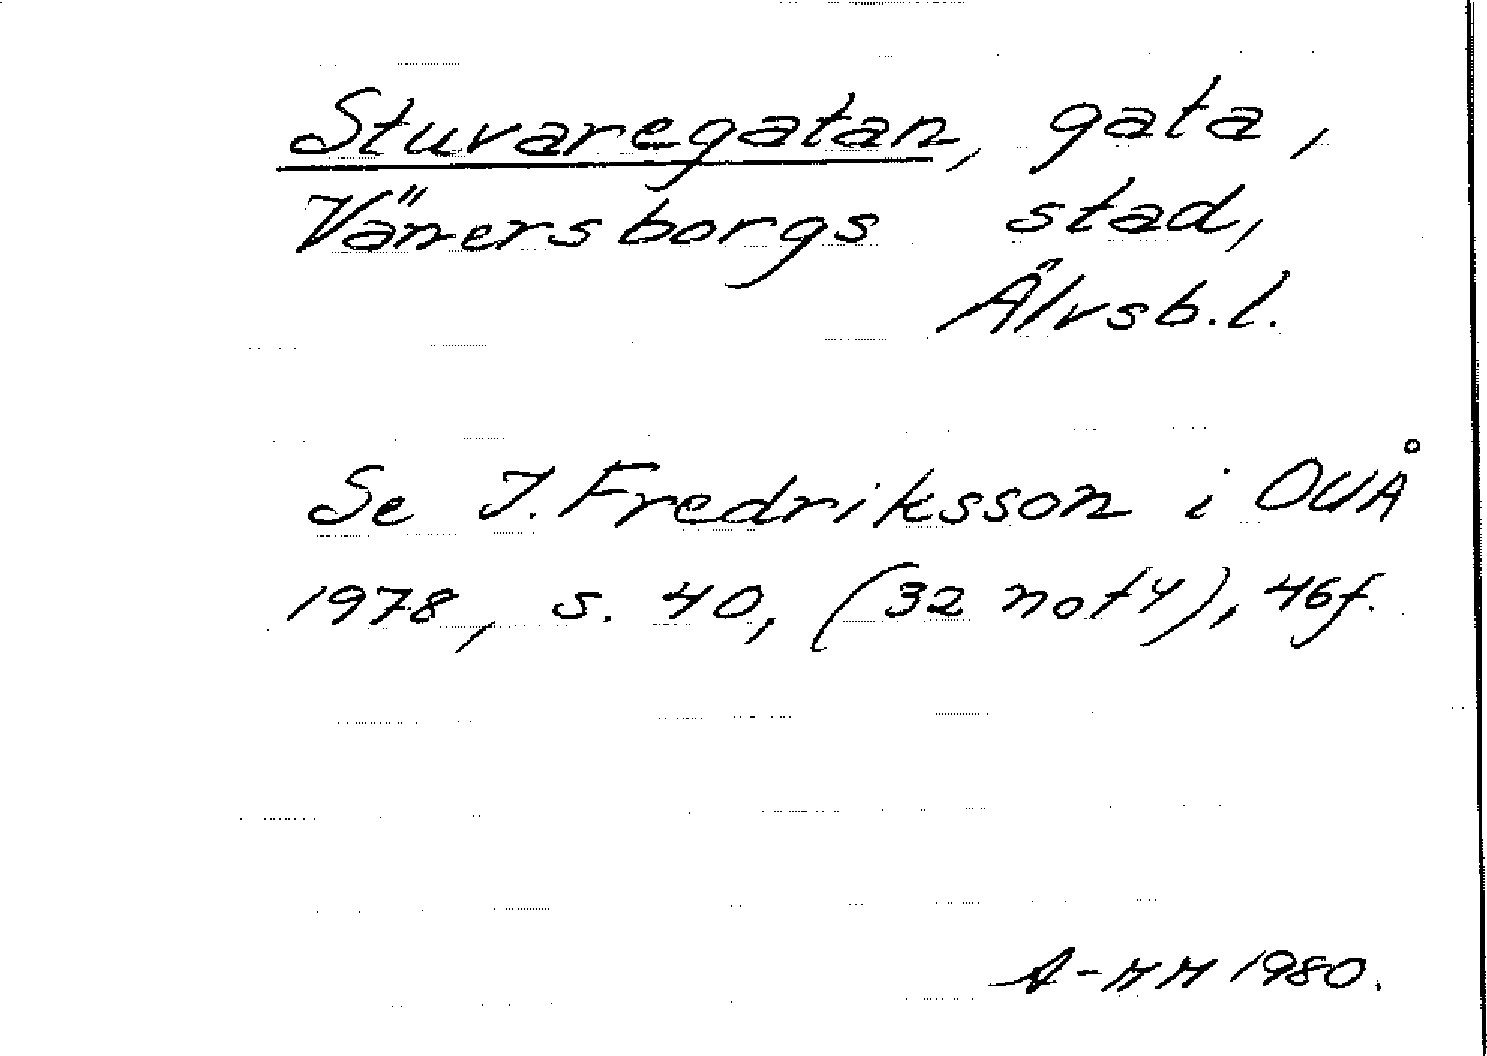 Stuvaregatan, gata,
Vänersborgs stad,
Älvsb.l.
Se I. Fredriksson i OUÅ
1978, s. 40, (32 not 4), 46f.
A-MM 1980.